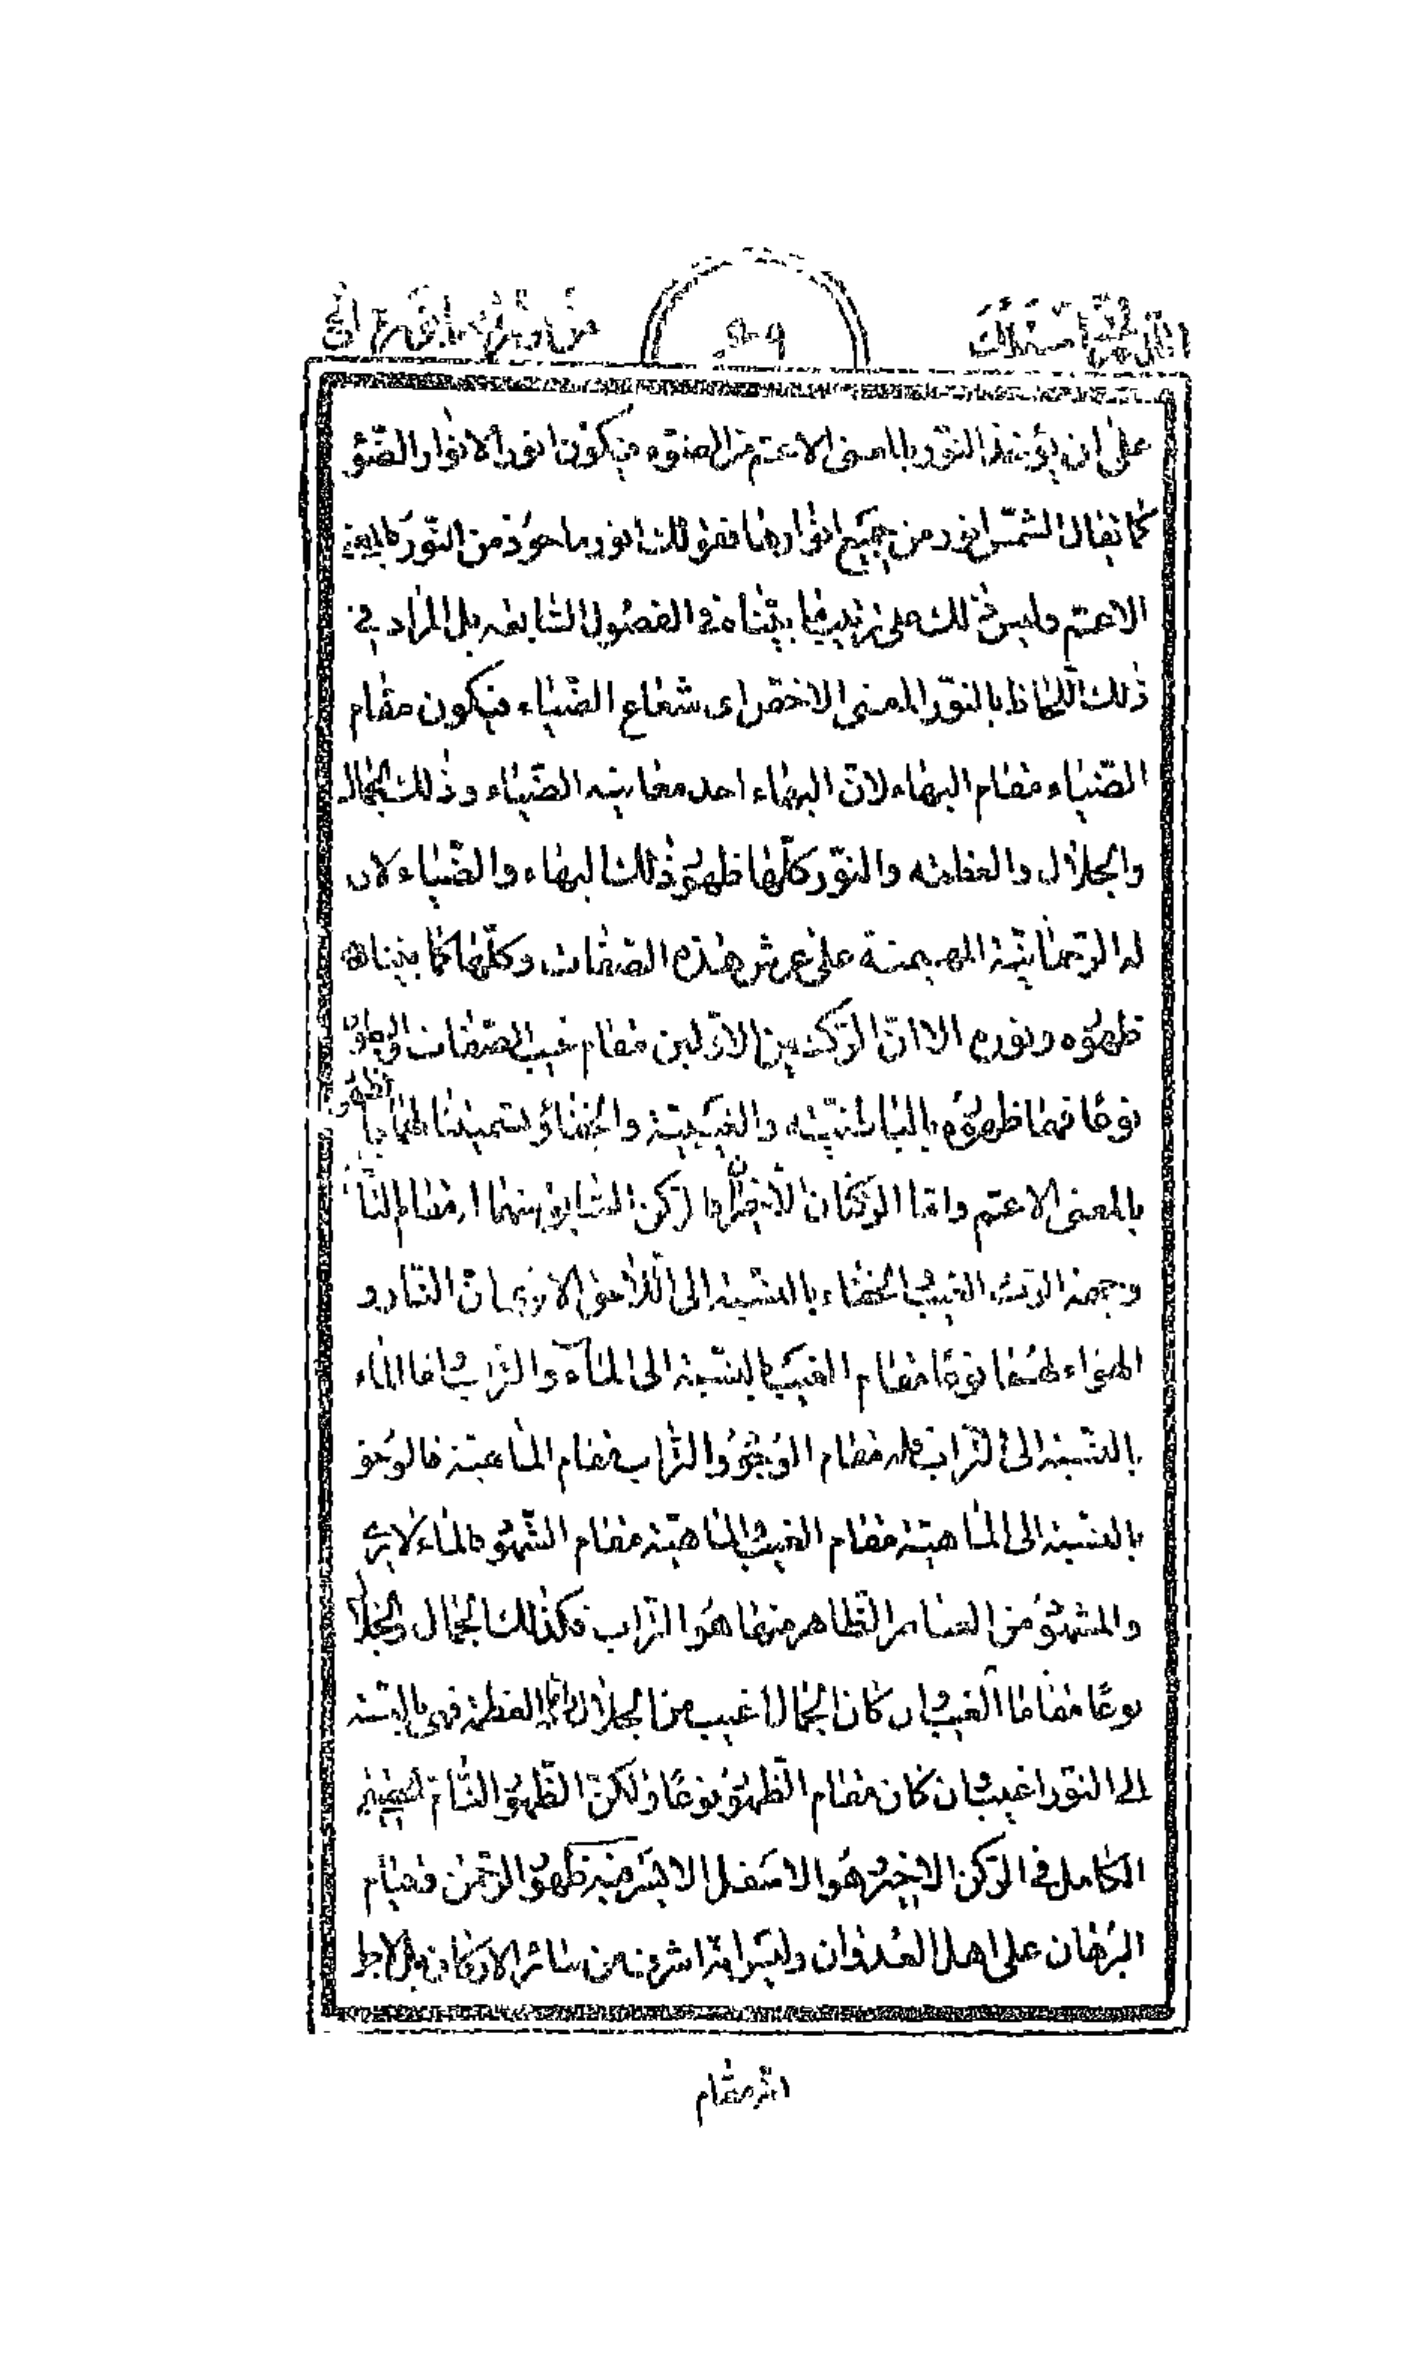 اللهم انى اسئلك
من نورك بانوره الخ
على ان يؤخذ النور بالمعنى الاعم من الضوء فيكون انور الانوار الضوء
كما يقال الشمس انور من جميع انوارها فقولك انور ماخوذ من النور بالمعنى
الاعم وليس ذلك على ترتيب ما بيناه فى الفصول السابقه بل المراد فى
ذلك اللحاظ بالنور المعنى الاخص اى شعاع الضياء فيكون مقام
الضياء مقام البهاء لان البهاء احد معانيه الضياء وذلك الجمال
والجلال والعظمه والنور كلها ظهور ذلك البهاء والضياء لان
له الرحمانية المهيمنة على عرش هذه الصفات وكلها كما بيناه
ظهوره ونوره الا ان الركنين الاولين مقام غيب الصفات والظهور
نوعا فهما ظهوره بالباطنيه والغيبية والخفاء وتسميتنا لهما بالظهور
بالمعنى الاعم واما الركنان الاخيران ركن السابق منهما مقام
وجهة الرب الغيب والخفاء بالنسبة الى اللاحق الا ترى ان النار و
الهواء لهما نوعا مقام الغيب بالنسبة الى الماء والتراب واما الماء
بالنسبة الى التراب فله مقام الوجود والتراب مقام الماهية فالوجود
بالنسبة الى الماهية مقام الغيب والماهية مقام الشهود فالماء لا يرى
والمشهود من العناصر الظاهر منها هو التراب فكذلك الجمال والجلال
نوعا مقامها الغيب وان كان الجمال اغيب من الجلال واما العظمة فهى بالنسبة
الى النور اغيب وان كان مقام الظهور نوعا ولكن الظهور التام
الكامل فى الركن الاخير هو الاسفل الايسر منه ظهور الرحمن فقام
البرهان على اهل العدوان وليس انه اشرف من سائر الاركان بل لاجل
انه مقام